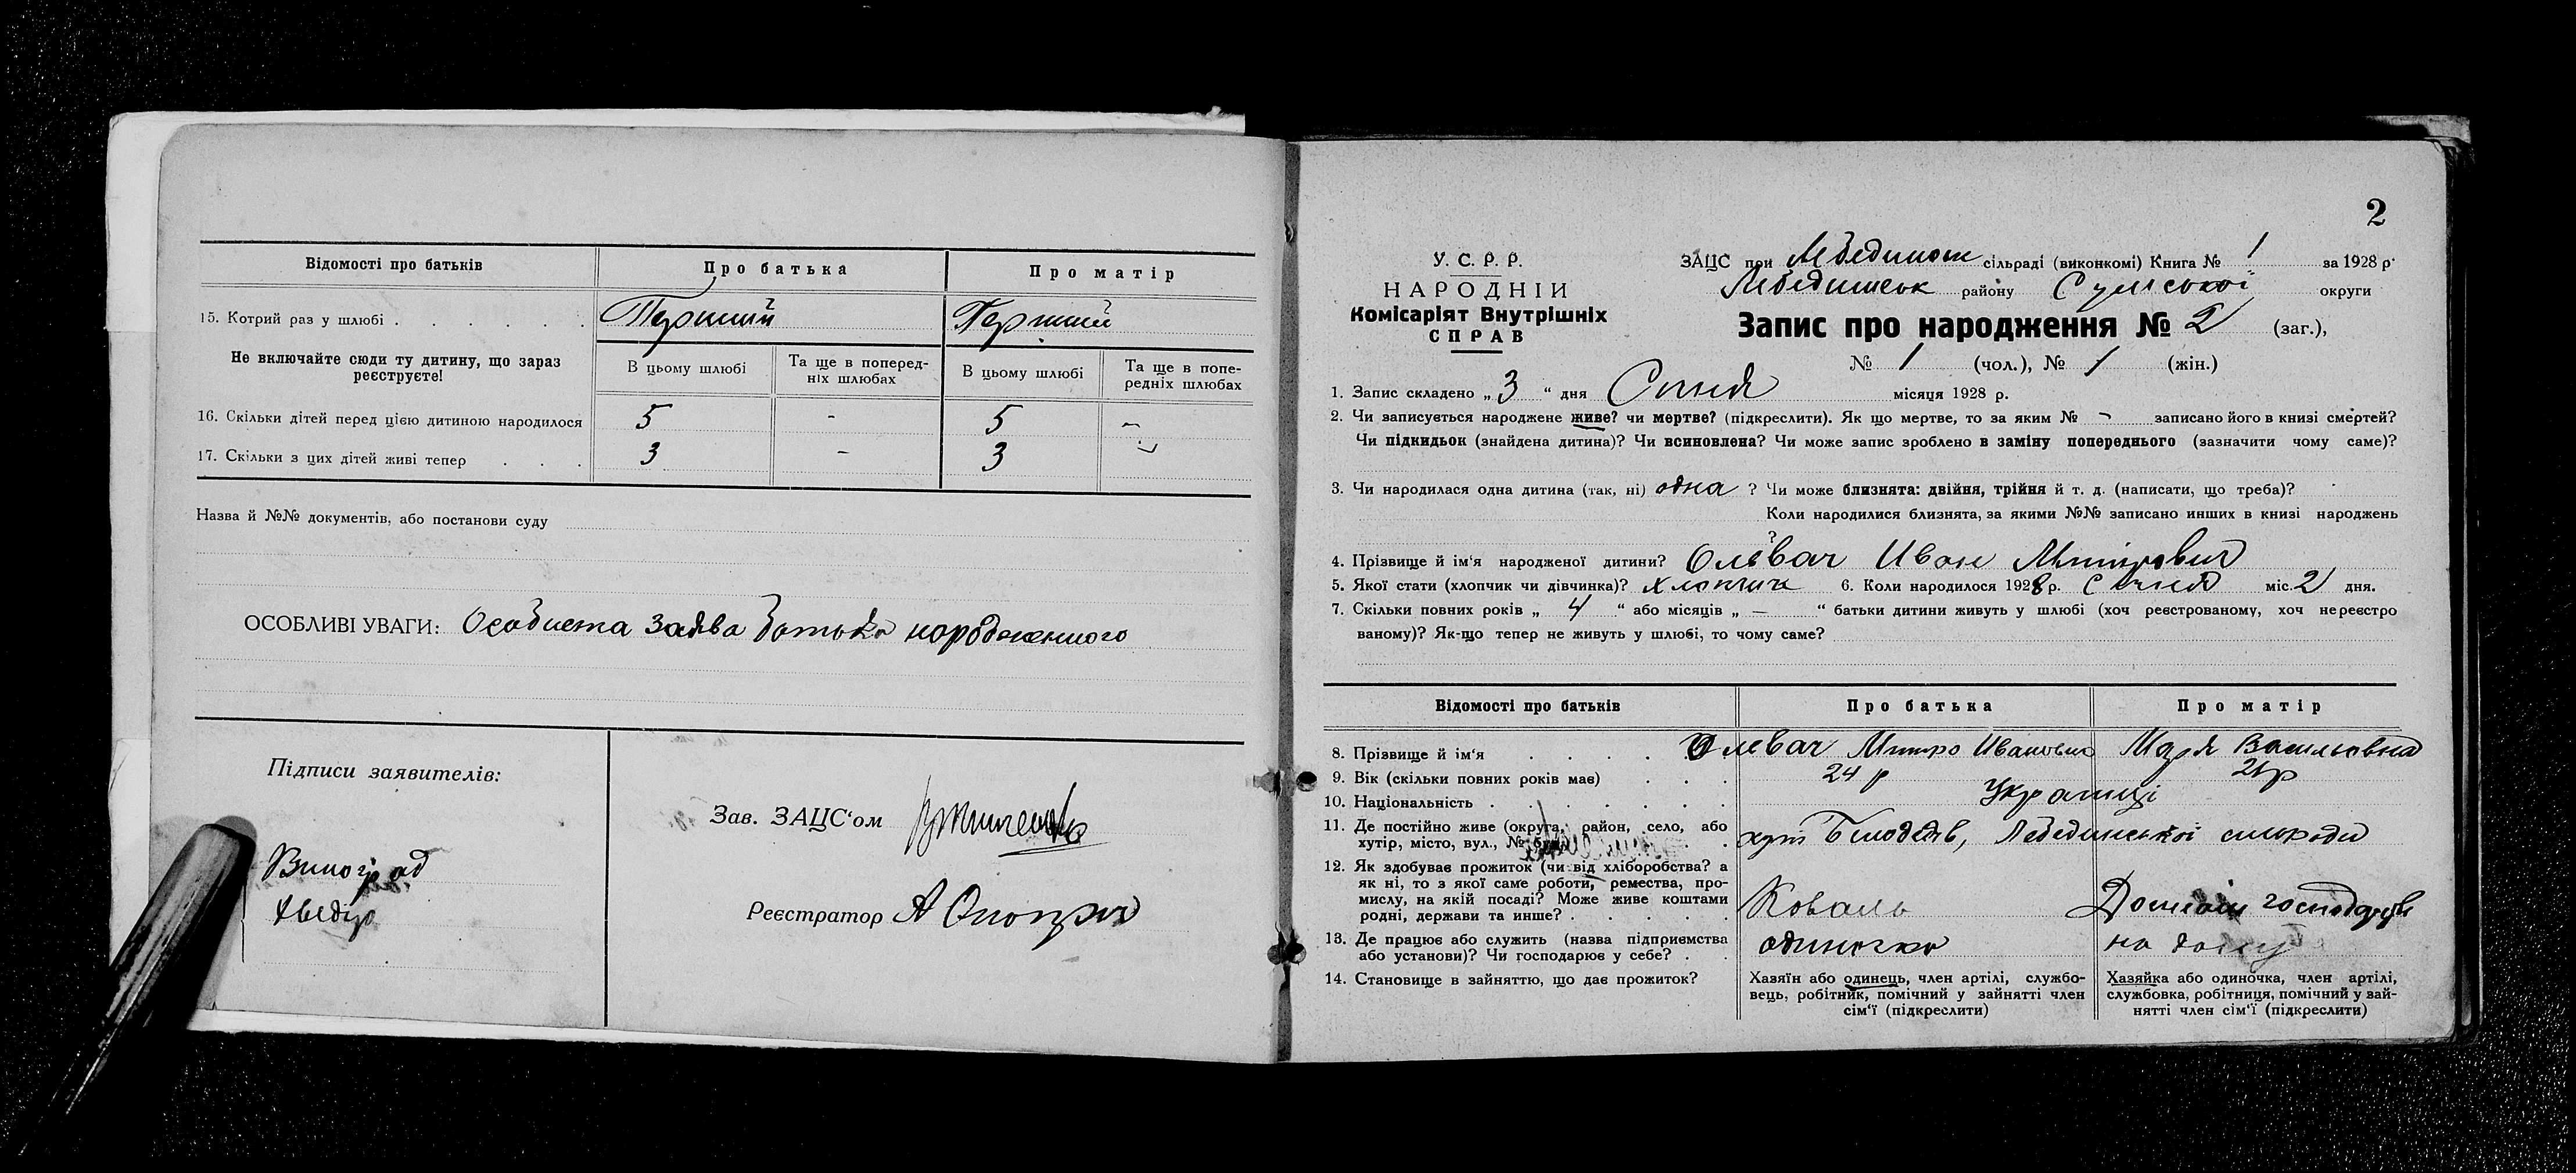 Відомості про батьків Про батька Про матір
15. Котрий раз у шлюбі . . . . . . Перший Перший
Не включайте сюди ту дитину, що зараз реєструєте!
В цьому шлюбі Та ще в попередніх шлюбах В цьому шлюбі Та ще в попередніх шлюбах
16. Скільки дітей перед цією дитиною народилося 5 - 5 -
17. Скільки з цих дітей живі тепер . . . 3 - 3 -
Назва й №№ документів, або постанови суду
ОСОБЛИВІ УВАГИ: Особиста заява батька народженного
Підписи заявителів:
Виноград
Зав. ЗАЦС'ом
Реєстратор А
2
У. С. Р. Р.
НАРОДНІЙ
Комісаріят Внутрішніх
СПРАВ
ЗАЦС при Лебединськ сільраді (виконкомі) Книга № 1 за 1928 р.
Лебединськ району Сумської округи
Запис про народження № 2 (заг.),
№ 1 (чол.), № 1 (жін.)
1. Запис складено „ 3 “ дня Січня місяця 1928 р.
2. Чи записується народжене живе? чи мертве? (підкреслити). Як що мертве, то за яким № - записано його в книзі смертей?
Чи підкидьок (знайдена дитина)? Чи всиновлена? Чи може запис зроблено в заміну попереднього (зазначити чому саме)?
3. Чи народилася одна дитина (так, ні) одна ? Чи може близнята: двійня, трійня й т. д. (написати, що треба)?
Коли народилися близнята, за якими №№ записано инших в книзі народжень
?
4. Прізвище й ім'я народженої дитини? Олевач Иван Митрович
5. Якої стати (хлопчик чи дівчинка)? хлопчик 6. Коли народилося 1928 р. Січня міс. 2 дня.
7. Скільки повних років „ 4 “ або місяців „ — “ батьки дитини живуть у шлюбі (хоч реєстрованому, хоч нереєстро
ваному)? Як-що тепер не живуть у шлюбі, то чому саме?
Відомості про батьків Про батька Про матір
8. Прізвище й ім'я . . . . Олевач Митро Иванович Марія Васильовна
9. Вік (скільки повних років має) . . . 24 р
10. Національність . . . . . . . Українці
11. Де постійно живе (округа, район, село, або
хутір, місто, вул., № буд.) хут Лебединської
12. Як здобуває прожиток (чи від хліборобства? а
як ні, то з якої саме роботи, ремества, про-
мислу, на якій посаді? Може живе коштами
родні, держави та инше? . . . . . Коваль Домашн господарств
13. Де працює або служить (назва підприємства
або установи)? Чи господарює у себе? . . одиночка на дому
14. Становище в зайняттю, що дає прожиток?
Хазяїн або одинець, член артілі, службо-
вець, робітник, помічний у зайнятті член
сім'ї (підкреслити)
Хазяйка або одиночка, член артілі,
службовка, робітниця, помічний у зай-
нятті член сім'ї (підкреслити)